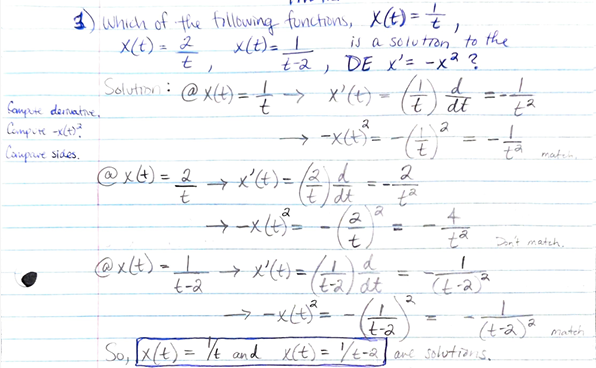 1) Which of the following functions, x(t) = 1/t,
x(t) = 2/t, x(t) = 1/(t-2), is a solution to the
DE x' = -x² ?
Solution: @ x(t) = 1/t → x'(t) = (1/t) d/dt = -1/t²
Compute derivative.
Compute -x(t)²
Compare sides.
→ -x(t)² = -(1/t)² = -1/t² match.
@ x(t) = 2/t → x'(t) = (2/t) d/dt = -2/t²
→ -x(t)² = -(2/t)² = -4/t² Don't match.
@ x(t) = 1/(t-2) → x'(t) = (1/(t-2)) d/dt = -1/(t-2)²
→ -x(t)² = -(1/(t-2))² = -1/(t-2)² match
So, x(t) = 1/t and x(t) = 1/t-2 are solutions.